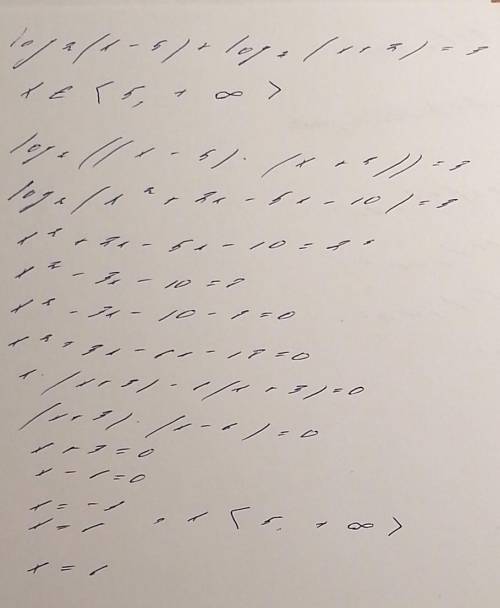 log₂(x-5)+log₂(x+2)=3
x∈⟨5,+∞⟩
log₂((x-5)·(x+2))=3
log₂(x²+2x-5x-10)=3
x²+2x-5x-10=2³
x²-3x-10=8
x²-3x-10-8=0
x²+3x-6x-18=0
x·(x+3)-6(x+3)=0
(x+3)·(x-6)=0
x+3=0
x-6=0
x=-3
x=6, x⟨5,+∞⟩
x=6